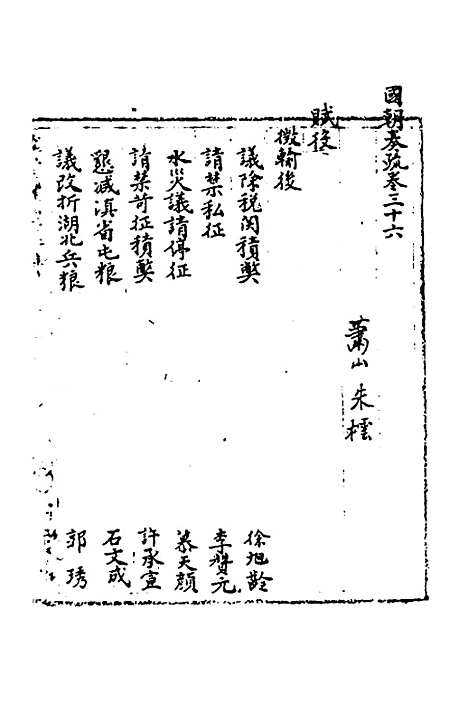 國朝奏疏卷三十六
蕭山朱橒
賦役
徵輸後
議除稅関積獘 徐旭齡
請禁私征 李贊元
水災議請停征 慕天顔
請禁苛征積獘 許承宣
懇減滇省屯粮 石文成
議改折湖北兵粮 郭琇